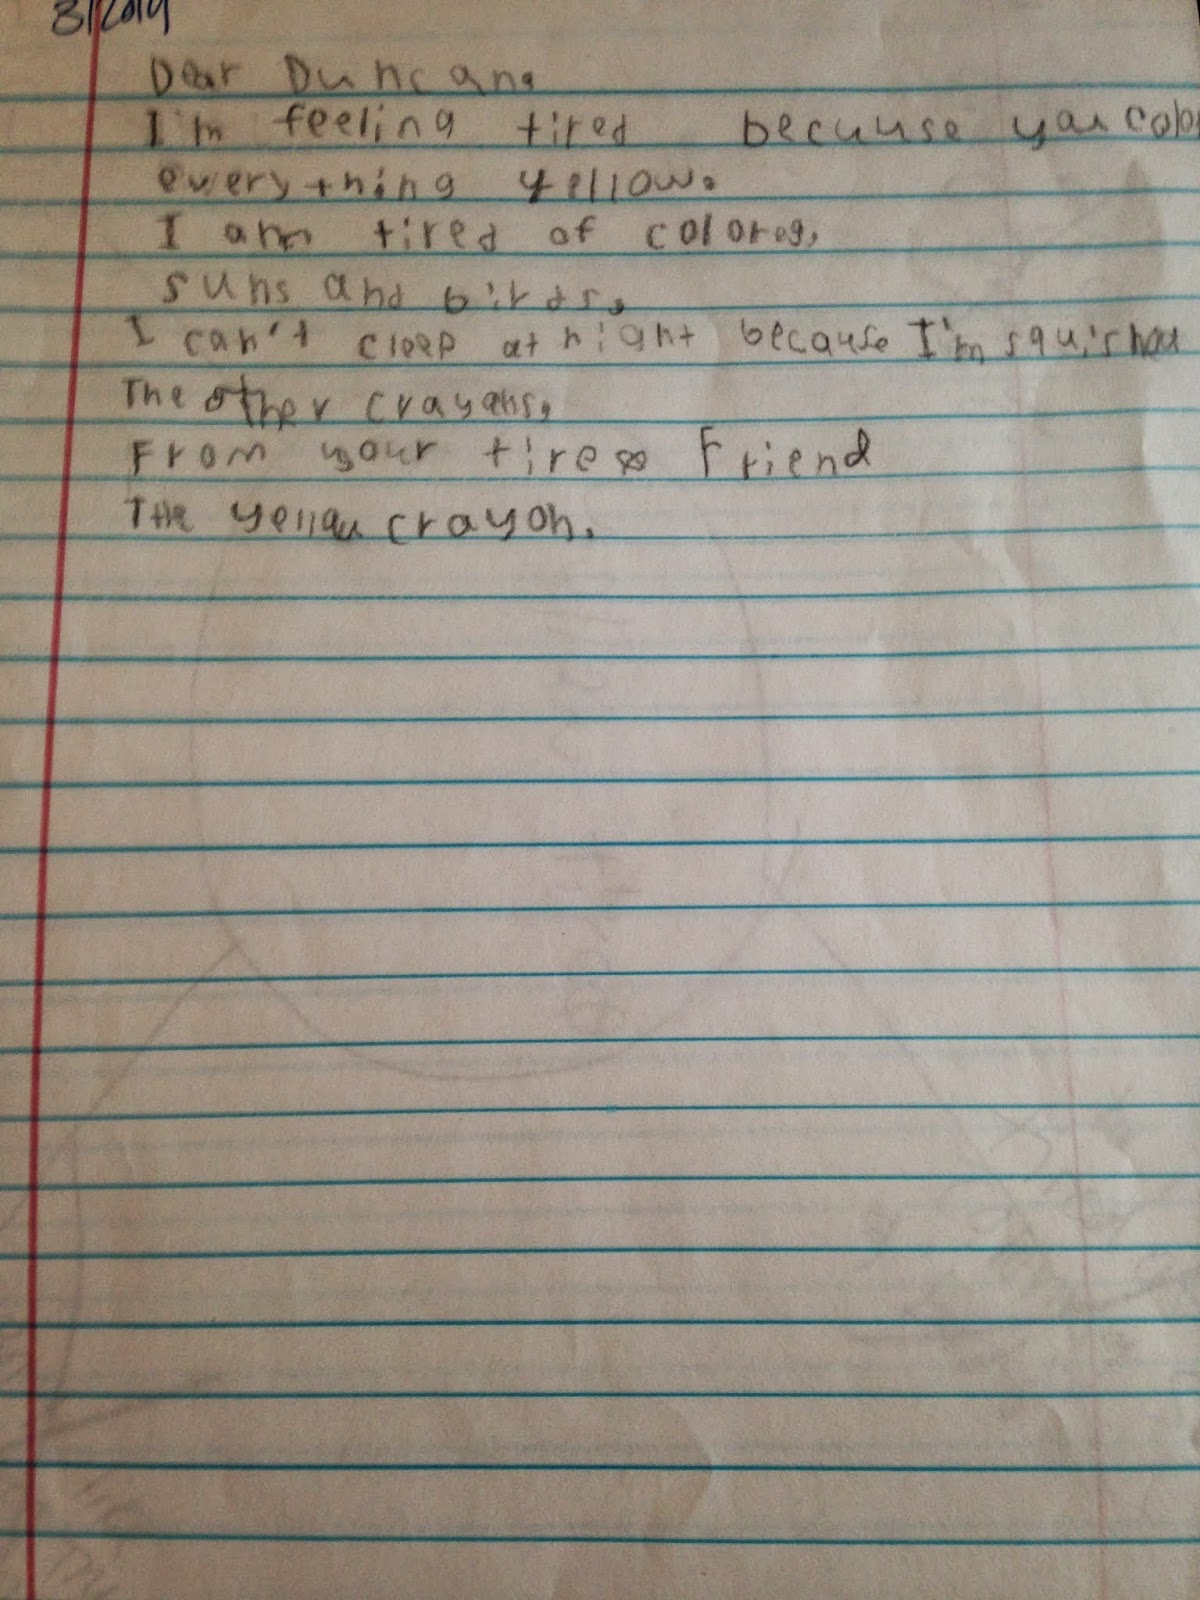 3/2014
Dear Duncan,
I'm feeling tired becuuse you color
everything yellow.
I am tired of colores,
suns and birds,
I can't cleep at night because I'm squished
The other crayons,
From your tired Friend
The yellow crayon.